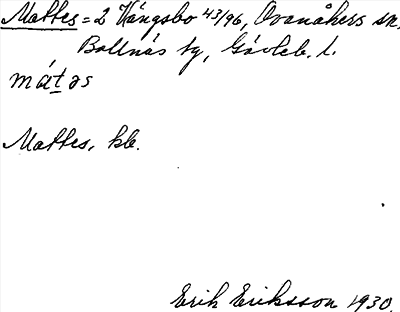 Mattes = 2 Kängsbo 43/96, Ovanåkers sn,
Bollnäs tg, Gävleb. l.
mát͟əs
Mattes, kb.
Erik Eriksson 1930.